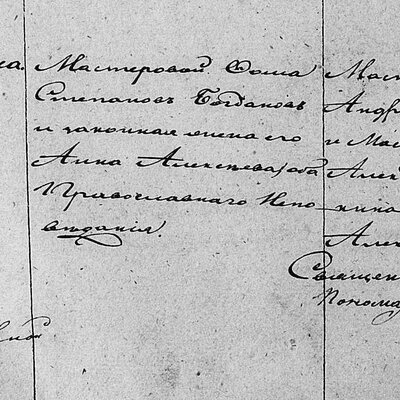 Мастеровой Ѳома
Степановъ Богдановъ
и законная жена его
Анна Алексѣева, оба
Православнаго Испо-
вѣданія.
Мас
Андр
и Мас
Алек
Алек
Священ
Понома